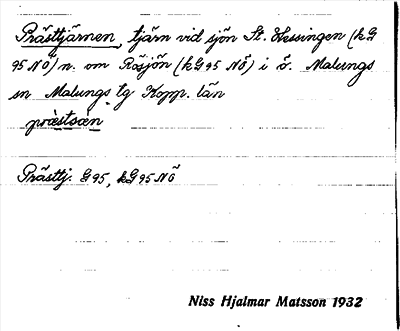 Prästtjärnen, tjärn vid sjön St. Hessingen (kG
95 NÖ) n. om Råsjön (kG 95 NÖ) i ö. Malungs
sn Malungs tg Kopp. län
præstsæn
Prästtj. G 95, kG 95 NÖ
Niss Hjalmar Matsson 1932